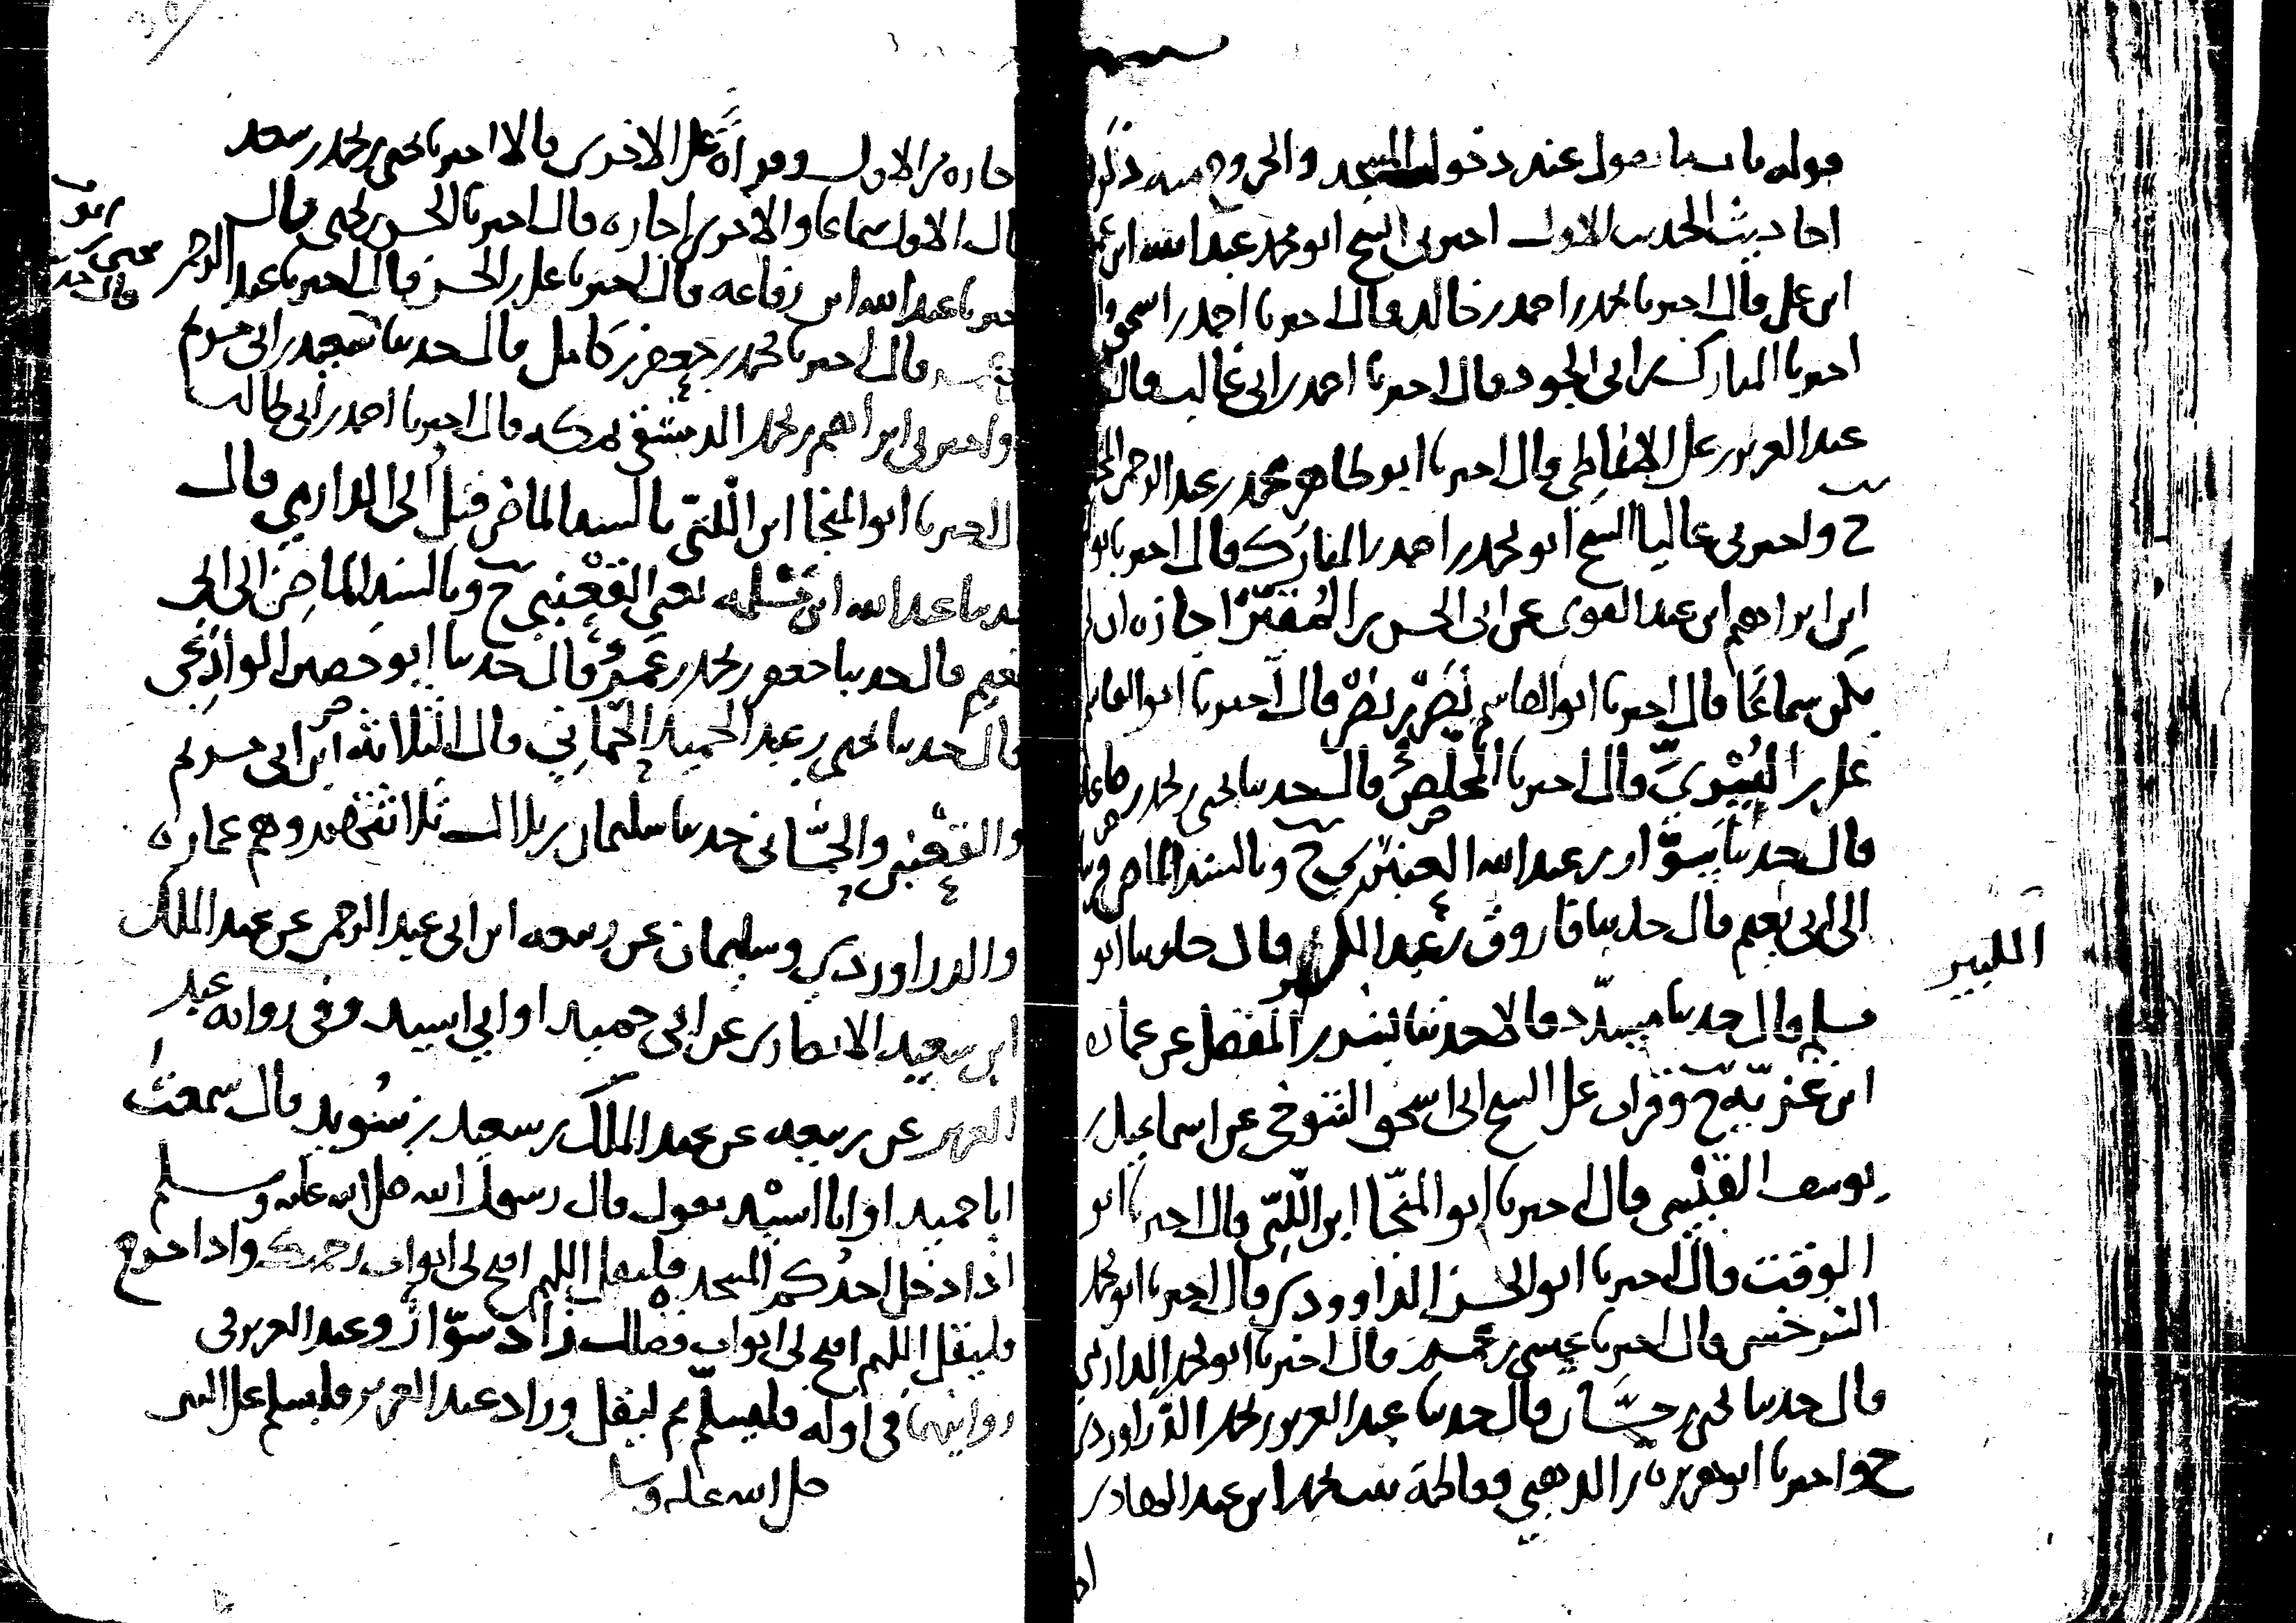 قوله باب ما يقول عند دخول المسجد والخروج منه ذكر
احاديث الحديث الاول اخبرني الشيخ ابو محمد عبد الله ابن
ابن علي قال اخبرنا محمد بن احمد بن خالد قال اخبرنا احمد بن اسحق
اخبرنا المبارك بن ابي الجود قال اخبرنا احمد بن ابي غالب قال
عبد العزيز بن علي الانماطي قال اخبرنا ابو طاهر محمد بن عبد الرحمن
ح واخبرني عاليا الشيخ ابو محمد بن احمد بن المبارك قال اخبرنا
ابن ابراهيم ابن عبد القوي عن ابي الحسن بن المُقَيَّر اجازة ان لم
يكن سماعًا قال اخبرنا ابو القاسم نَصْر بن نَصْر قال اخبرنا ابو القاسم
علي بن البُسْريّ قال اخبرنا المخلّص قال حدثنا يحيى بن محمد بن صاعد
قال حدثنا سَوّار بن عبد الله العنبري ح وبالسند الماضي
الى ابي نعيم قال حدثنا فاروق بن عبد الكبير قال حدثنا ابو
الكبير
مسلم قال حدثنا مسدّد قالا حدثنا بشر بن المفضل عن عمارة
ابن غزيّة ح وقرات على الشيخ ابي اسحق التنوخي عن اسماعيل بن
يوسف القيسي قال اخبرنا ابو المنجّا ابن اللّتّي قال اخبرنا ابو
الوقت قال اخبرنا ابو الحسن الداوودي قال اخبرنا ابو محمد
السرخسي قال اخبرنا عيسى بن عمر قال اخبرنا ابو محمد الدارمي
قال حدثنا يحيى بن حسَّان قال حدثنا عبد العزيز بن محمد الدراوردي
ح واخبرنا ابو هريرة بن الذهبي وفاطمة بنت محمد ابن عبد الهادي
اجازة من الاول وقراءة على الاخرى قالا اخبرنا يحيى بن محمد بن سعد
قال الاول سماعا والاخرى اجازة قال اخبرنا الحسن بن يحيى قال
اخبرنا عبد الله ابن رفاعة قال اخبرنا علي بن الحسن قال اخبرنا عبد الرحمن
قال اخبرنا محمد بن جعفر بن كامل قال حدثنا سعيد بن ابي مريم
واخبرني ابراهيم بن محمد الدمشقي بمكة قال اخبرنا احمد بن ابي طالب
قال اخبرنا ابو المنجا ابن اللّتّي بالسند الماضي قبل الى الدارمي قال
حدثنا عبد الله ابن مَسْلمة يعني القَعْنبي ح وبالسند الماضي الى ابي
نعيم قال حدثنا جعفر بن محمد بن عَمْرو قال حدثنا ابو حصين الوادعي
قال حدثنا يحيى بن عبد الحميد الحِمّاني قال الثلاثة ابن ابي مريم
والقَعْنبي والحِمّاني حدثنا سليمان بن بلال ثلاثتهم وهم عمارة
والدراوردي وسليمان عن ربيعة ابن ابي عبد الرحمن عن عبد الملك
ابن سعيد الانصاري عن ابي حميد او ابي اسيد وفي رواية عبد
العزيز عن ربيعة عن عبد الملك بن سعيد بن سُويد قال سمعت
ابا حميد او ابا اسيْد يقول قال رسول الله صلى الله عليه وسلم
اذا دخل احدكم المسجد فليقل اللهم افتح لي ابواب رحمتك واذا خرج
فليقل اللهم افتح لي ابواب فضلك زاد سوّار وعبد العزيز في
روايتهما في اوله فليسلّم ثم ليقل وزاد عبد العزيز فليسلم على النبي
صلى الله عليه وسلم